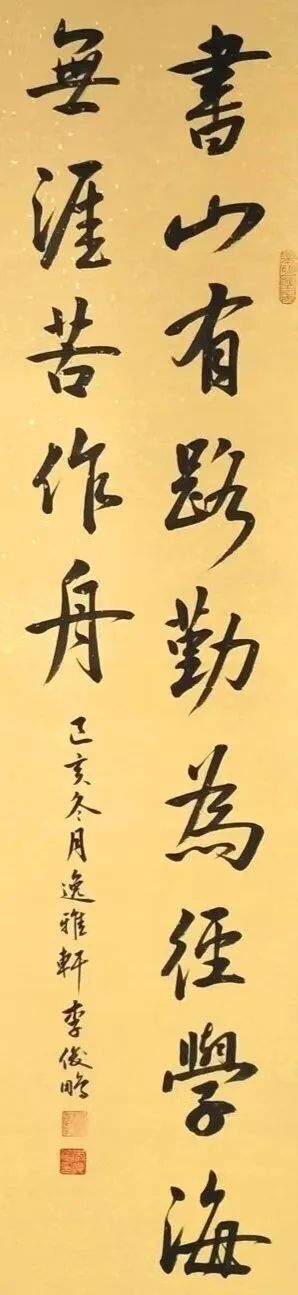 書山有路勤為徑學海
無涯苦作舟
己亥冬月逸雅軒李俊鵬